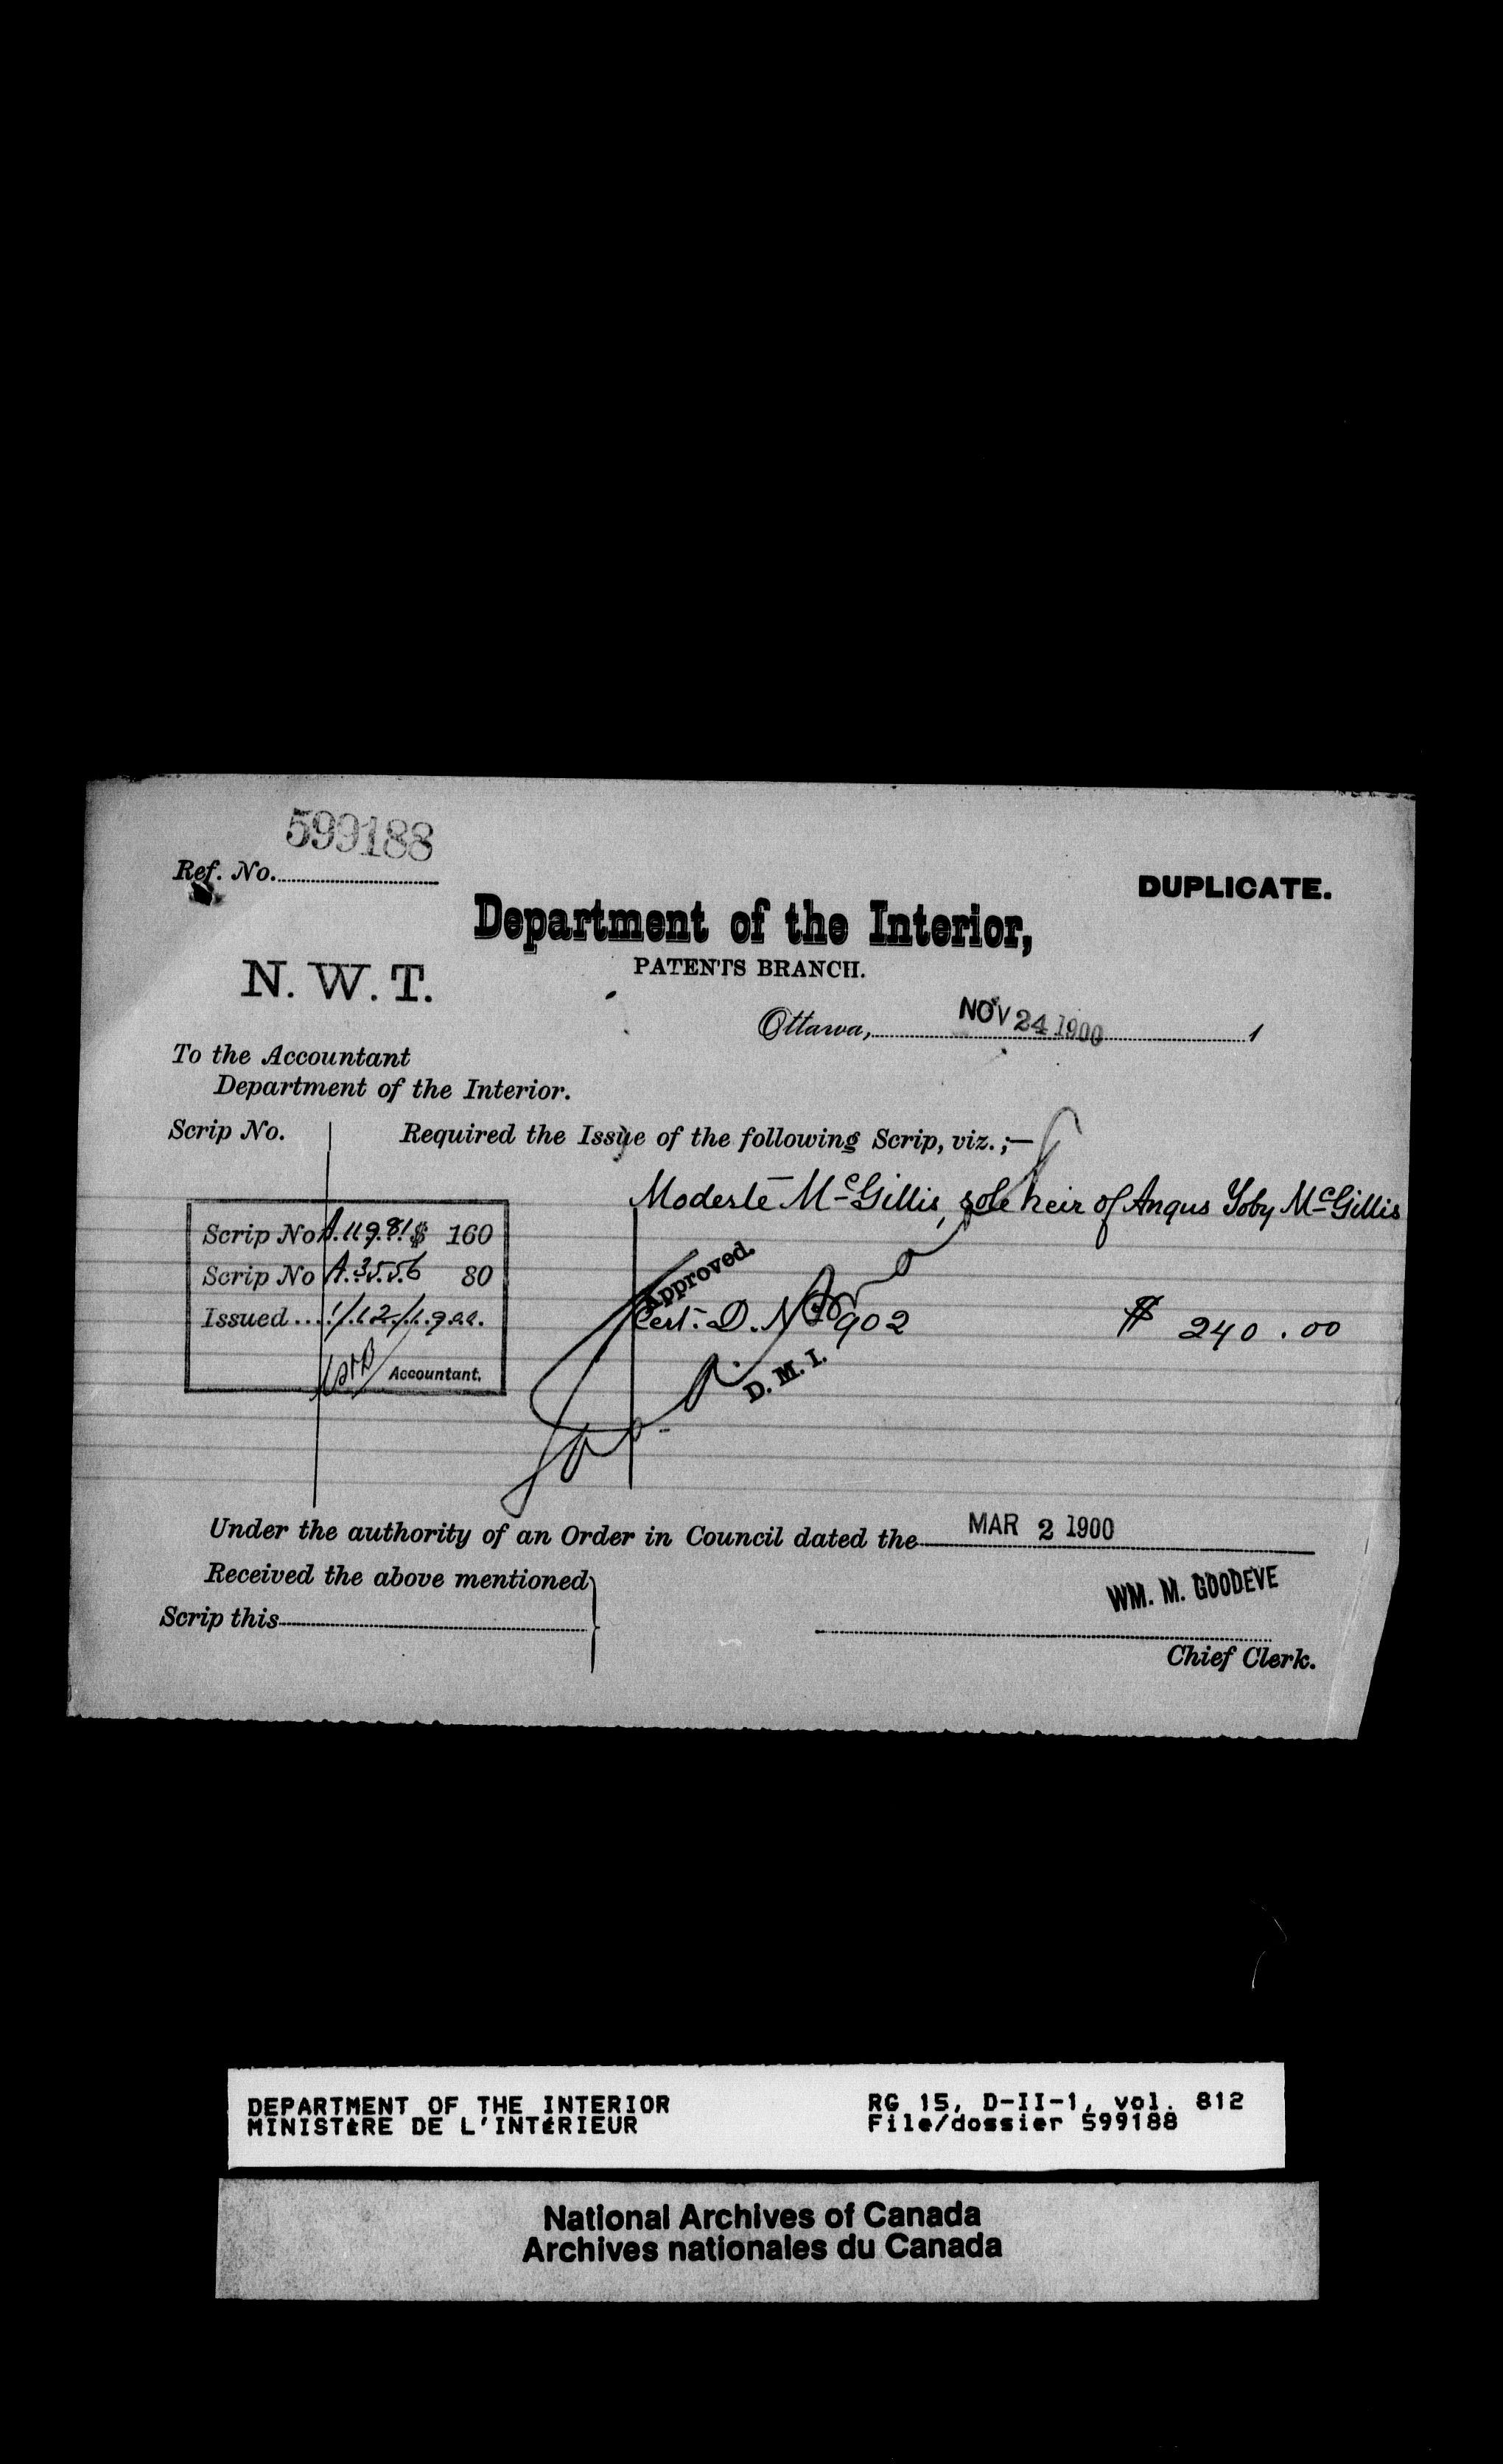 599188
Ref. No.
DUPLICATE.
Department of the Interior,
PATENTS BRANCH.
N. W. T.
Ottawa, NOV 24 1900 1
To the Accountant
Department of the Interior.
Scrip No. Required the Issue of the following Scrip, viz. ;—
Modeste McGillis, sole heir of Angus Toby McGillis
Scrip No A.11981 $ 160
Scrip No A.3556 80
Issued.... 1/12/1900.
Accountant.
Approved.
Cert. D. No 902 $ 240.00
D. M. I.
Under the authority of an Order in Council dated the MAR 2 1900
Received the above mentioned
Scrip this
WM. M. GOODEVE
Chief Clerk.
DEPARTMENT OF THE INTERIOR RG 15, D-II-1, vol. 812
MINISTÈRE DE L'INTÉRIEUR File/dossier 599188
National Archives of Canada
Archives nationales du Canada